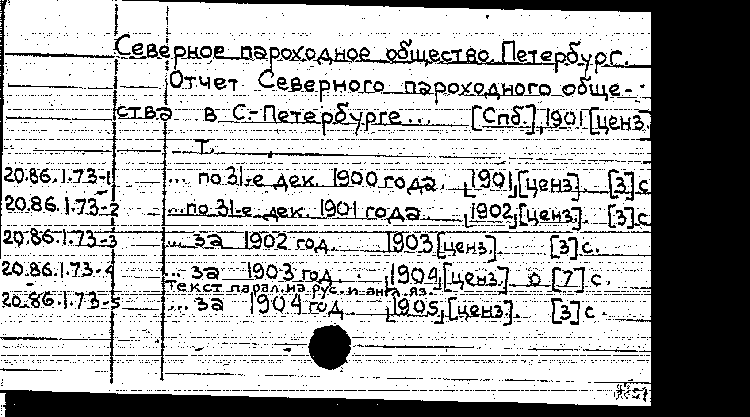 Северное пароходное общество. Петербург.
Отчет Северного пароходного обще-
ства в С.-Петербурге... [Спб.], 1901 [ценз.
т.
20.86.1.73-1 ... по 31-е дек. 1900 года. [1901], [ценз]. [3] с
20.86.1.73-2 ... по 31-е дек. 1901 года [1902], [ценз]. [3] с
20.86.1.73-3 ... за 1902 год. 1903 [ценз]. [3] с.
20.86.1.73-4 ... за 1903 год. [1904], [ценз]. [7] с.
Текст парал. на рус. и англ. яз.
20.86.1.73-5 ... за 1904 год. [1905], [ценз]. [3] с.